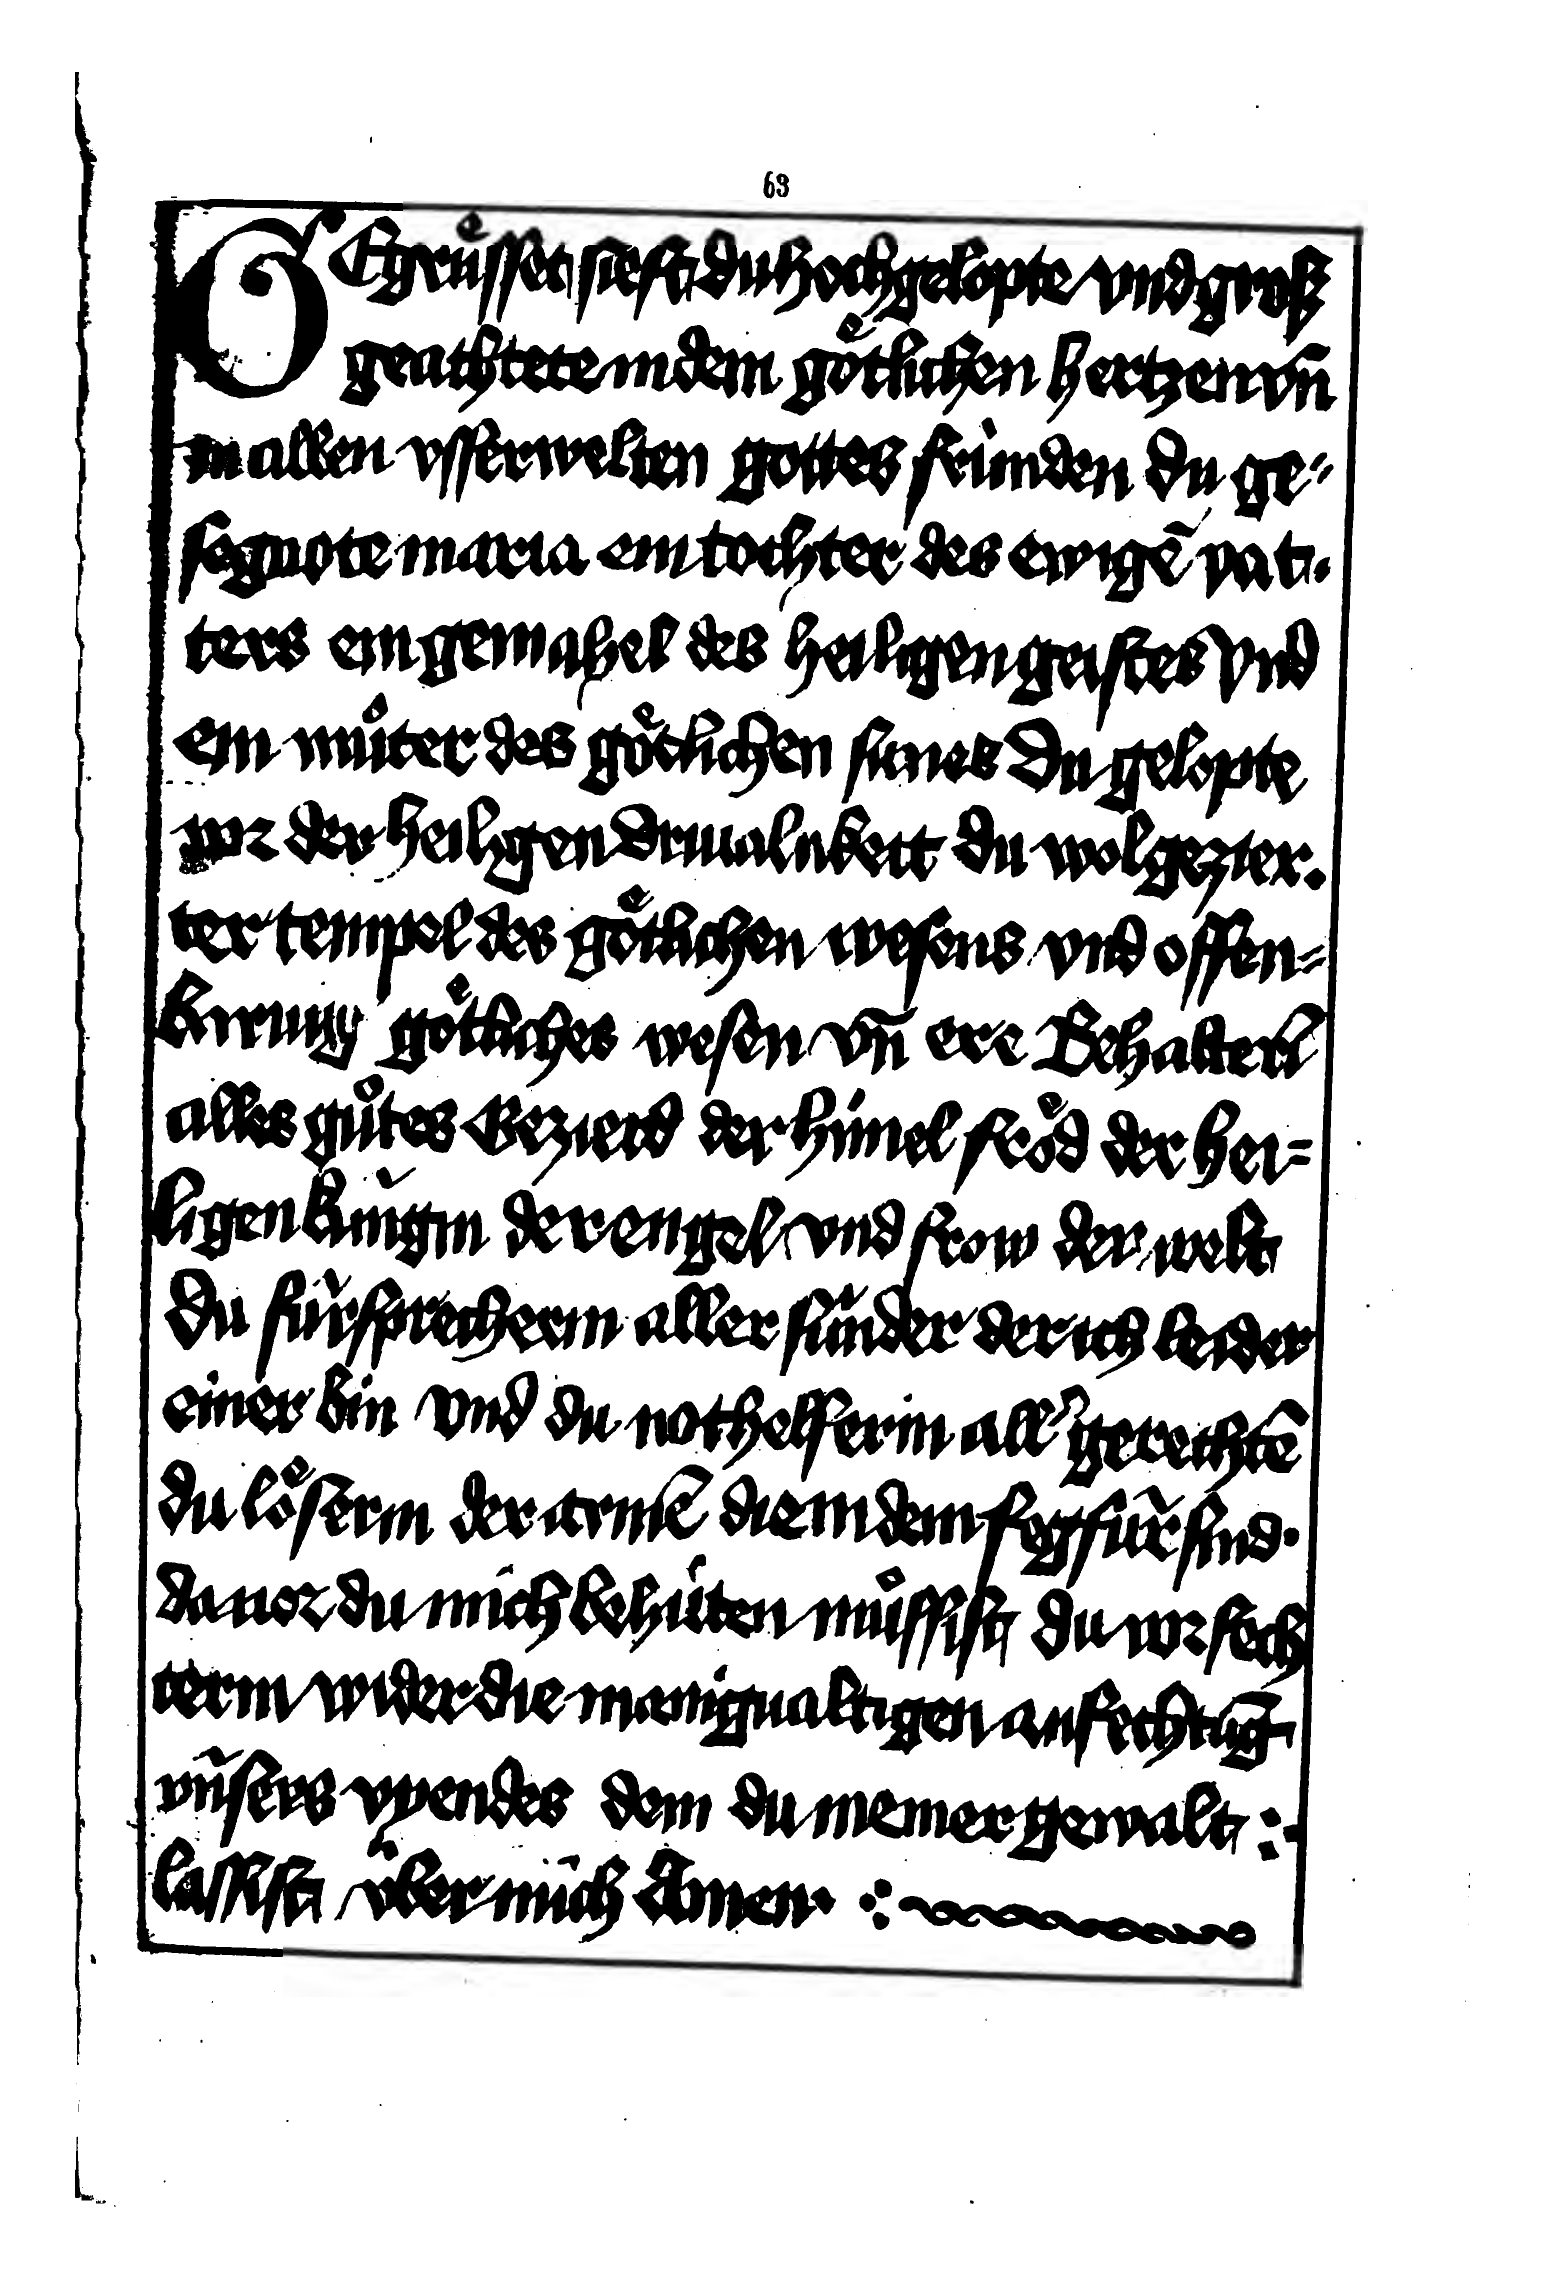 63
GEgruͤsset siest du hochgelopte vnd groß
geachtete in dem goͤtlichen hertzen vn̄
in allen vsserwelten gottes frúnden du ge⸗
segnote maria ein tochter des ewigē vat.
ters ein gemahel des heiligen geistes vnd
ein muͦter des goͤtlichen sunes Du gelopte
vor der heiligen driualtikeit du wolgezier.
ter tempel des goͤtlichen wesens vnd offen⸗
barung goͤtliches wesen vn̄ ere Behalterī
alles guͦtes Bezierd der himel froͤd der hei⸗
ligen kúngin der engel vnd frow der welt
Du fúrsprecherin aller súnder der ich leider
einer bin vnd du nothelferin all' gerechtē
du loͤserin der armē die in dem fegfúr sind.
da uor du mich behúten muͦssist du vorfech
terin wider die manigualtigen anfechtūg
vnsers vyendes dem du niemer gewalt :
lassist úber mich Amen.